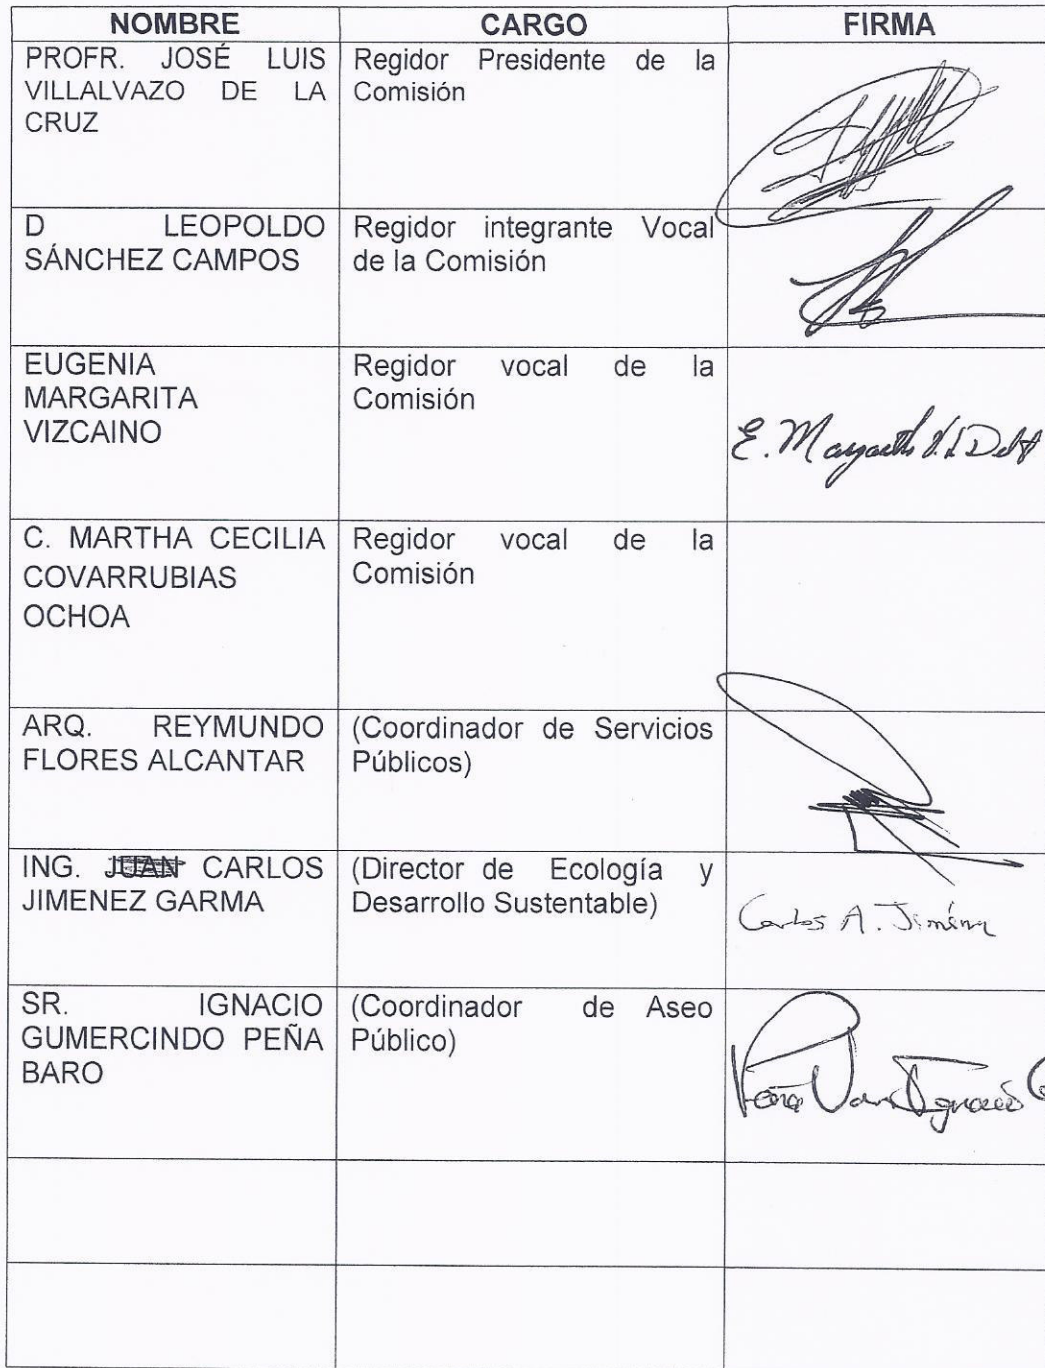 NOMBRE CARGO FIRMA
PROFR. JOSÉ LUIS
VILLALVAZO DE LA
CRUZ
Regidor Presidente de la
Comisión
D LEOPOLDO
SÁNCHEZ CAMPOS
Regidor integrante Vocal
de la Comisión
EUGENIA
MARGARITA
VIZCAINO
Regidor vocal de la
Comisión
E. Margarita
C. MARTHA CECILIA
COVARRUBIAS
OCHOA
Regidor vocal de la
Comisión
ARQ. REYMUNDO
FLORES ALCANTAR
(Coordinador de Servicios
Públicos)
ING. JUAN CARLOS
JIMENEZ GARMA
(Director de Ecología y
Desarrollo Sustentable)
Carlos A. Jiménez
SR. IGNACIO
GUMERCINDO PEÑA
BARO
(Coordinador de Aseo
Público)
Peña Ignacio